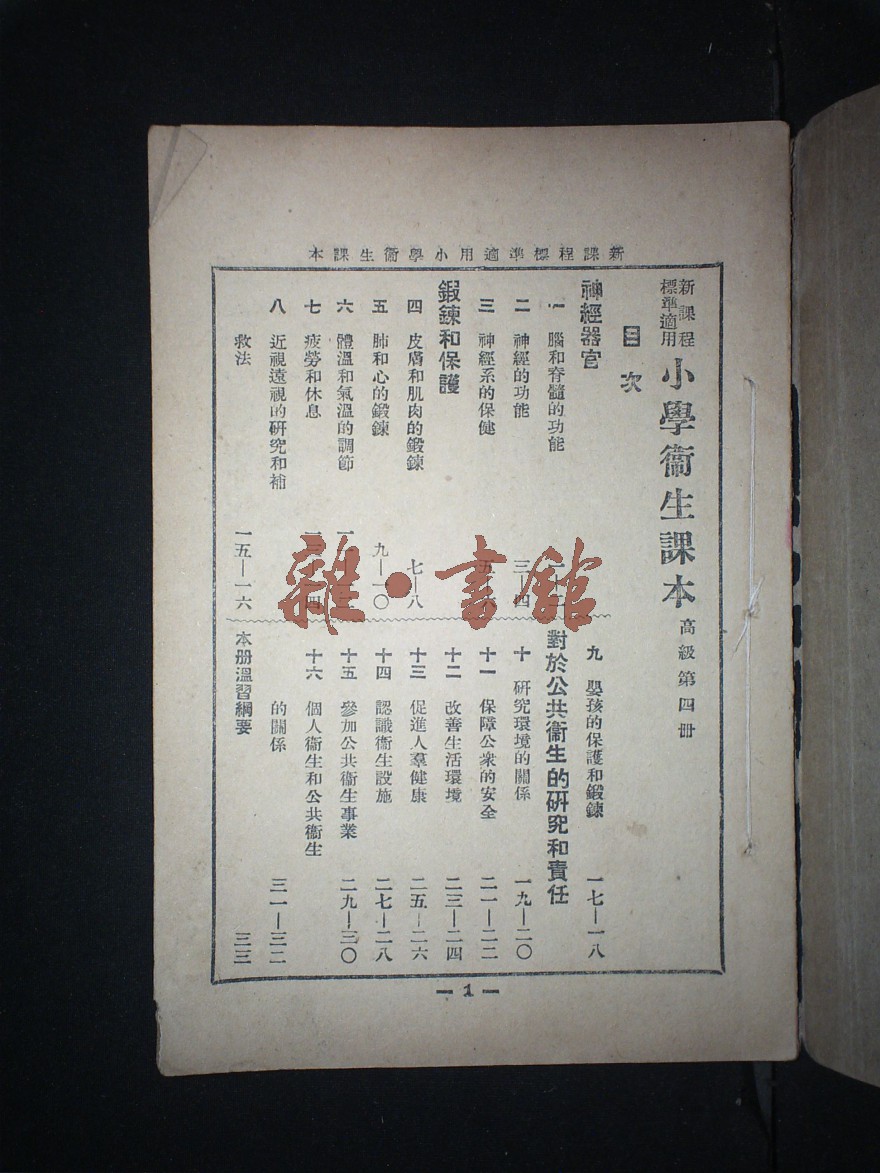 新課程標準適用小學衞生課本
新課程
標準適用
小學衞生課本
高級第四册
目次
神經器官
一 腦和脊髓的功能
二 神經的功能 三—四
三 神經系的保健
鍛鍊和保護
四 皮膚和肌肉的鍛鍊 七—八
五 肺和心的鍛鍊 九—一〇
六 體溫和氣溫的調節
七 疲勞和休息
八 近視遠視的研究和補
救法 一五—一六
九 嬰孩的保護和鍛鍊 一七—一八
對於公共衞生的研究和責任
十 研究環境的關係 一九—二〇
十一 保障公衆的安全 二一—二二
十二 改善生活環境 二三—二四
十三 促進人羣健康 二五—二六
十四 認識衞生設施 二七—二八
十五 參加公共衞生事業 二九—三〇
十六 個人衞生和公共衞生
的關係 三一—三二
本册溫習綱要 三三
—1—
雜·書館